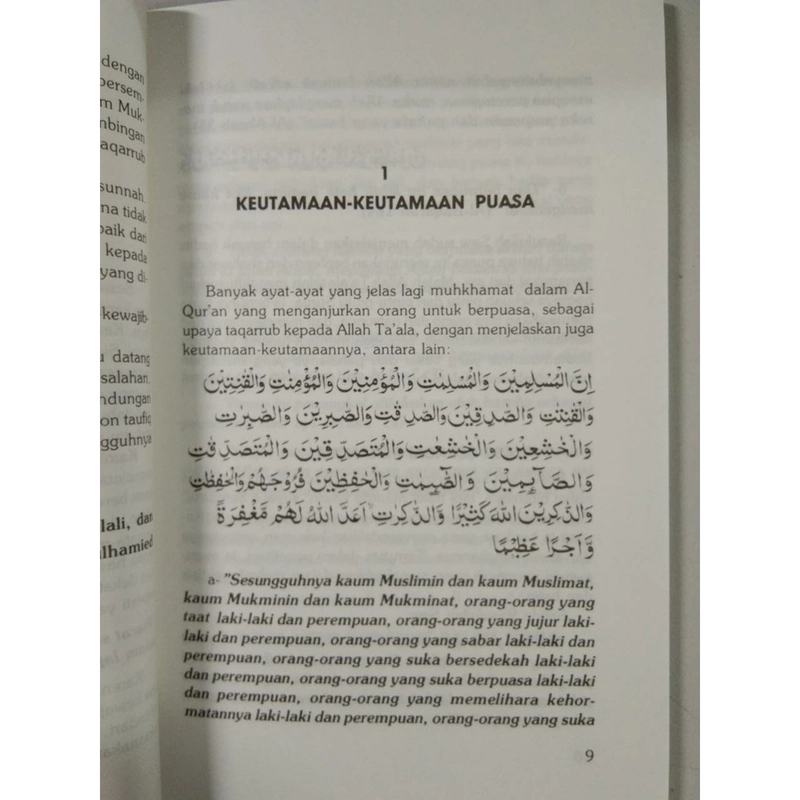 dengan
persem-
m Muk-
nbingan
aqarrub
sunnah.
na tidak
baik dari
kepada
yang di-
kewajib-
u datang
salahan.
ndungan
on taufiq
gguhnya
lali, dan
lhamied
1
KEUTAMAAN-KEUTAMAAN PUASA
Banyak ayat-ayat yang jelas lagi muhkhamat dalam Al-
Qur'an yang menganjurkan orang untuk berpuasa, sebagai
upaya taqarrub kepada Allah Ta'ala, dengan menjelaskan juga
keutamaan-keutamaannya, antara lain:
اِنَّ الْمُسْلِمِيْنَ وَالْمُسْلِمٰتِ وَالْمُؤْمِنِيْنَ وَالْمُؤْمِنٰتِ وَالْقٰنِتِيْنَ
وَالْقٰنِتٰتِ وَالصّٰدِقِيْنَ وَالصّٰدِقٰتِ وَالصّٰبِرِيْنَ وَالصّٰبِرٰتِ
وَالْخٰشِعِيْنَ وَالْخٰشِعٰتِ وَالْمُتَصَدِّقِيْنَ وَالْمُتَصَدِّقٰتِ
وَالصَّآىِٕمِيْنَ وَالصّٰۤىِٕمٰتِ وَالْحٰفِظِيْنَ فُرُوْجَهُمْ وَالْحٰفِظٰتِ
وَالذّٰكِرِيْنَ اللهَ كَثِيْرًا وَّالذّٰكِرٰتِ اَعَدَّ اللهُ لَهُمْ مَّغْفِرَةً
وَّاَجْرًا عَظِيْمًا
a- "Sesungguhnya kaum Muslimin dan kaum Muslimat,
kaum Mukminin dan kaum Mukminat, orang-orang yang
taat laki-laki dan perempuan, orang-orang yang jujur laki-
laki dan perempuan, orang-orang yang sabar laki-laki dan
perempuan, orang-orang yang suka bersedekah laki-laki
dan perempuan, orang-orang yang suka berpuasa laki-laki
dan perempuan, orang-orang yang memelihara kehor-
matannya laki-laki dan perempuan, orang-orang yang suka
9